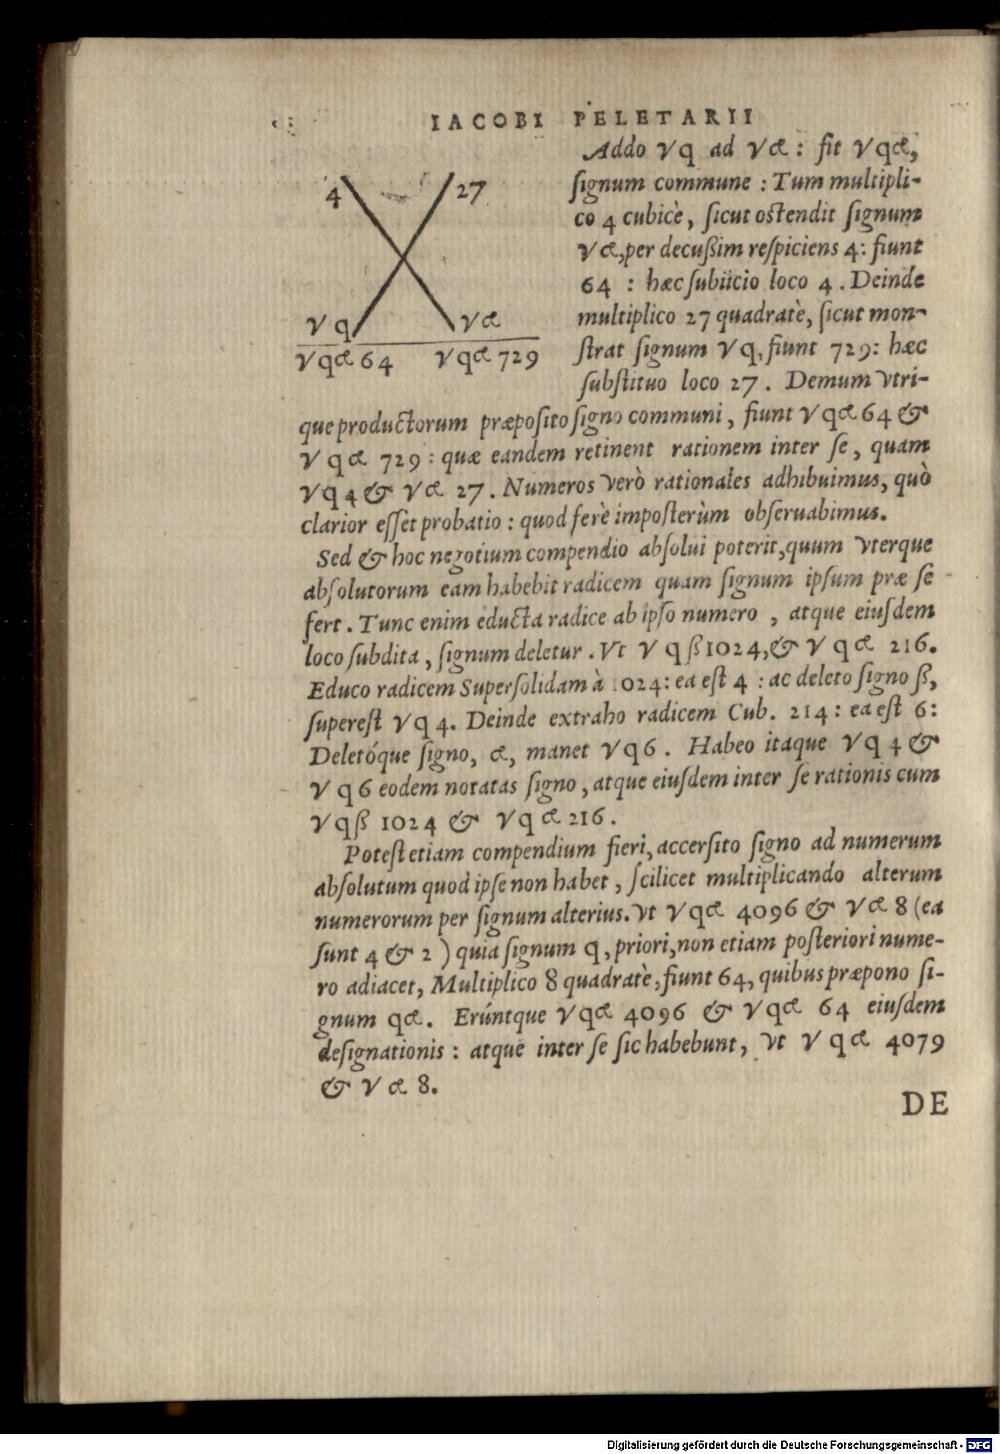 IACOBI PELETARII
4 27
√ q √ ce
√ qce 64 √ qce 729
Addo √ q ad √ ce : fit √ qce,
ſignum commune : Tum multipli-
co 4 cubicè, ſicut oſtendit ſignum
√ ce, per decußim reſpiciens 4: fiunt
64 : hæc ſubiicio loco 4. Deinde
multiplico 27 quadratè, ſicut mon-
ſtrat ſignum √ q, fiunt 729: hæc
ſubſtituo loco 27. Demum vtri-
que productorum præpoſito ſigno communi, fiunt √ qce 64 &
√ q ce 729 : quæ eandem retinent rationem inter ſe, quam
√ q 4 & √ ce 27. Numeros verò rationales adhibuimus, quò
clarior eſſet probatio : quod ferè impoſterùm obſeruabimus.
Sed & hoc negotium compendio abſolui poterit, quum vterque
abſolutorum eam habebit radicem quam ſignum ipſum præ ſe
fert. Tunc enim educta radice ab ipſo numero , atque eiuſdem
loco ſubdita, ſignum deletur. Vt √ q ß 1024, & √ q ce 216.
Educo radicem Superſolidam à 1024: ea eſt 4 : ac deleto ſigno ß,
ſupereſt √ q 4. Deinde extraho radicem Cub. 214: ea eſt 6:
Deletóque ſigno, ce, manet √ q 6. Habeo itaque √ q 4 &
√ q 6 eodem notatas ſigno, atque eiuſdem inter ſe rationis cum
√ q ß 1024 & √ q ce 216.
Poteſt etiam compendium fieri, accerſito ſigno ad numerum
abſolutum quod ipſe non habet, ſcilicet multiplicando alterum
numerorum per ſignum alterius. Vt √ qce 4096 & √ ce 8 (ea
ſunt 4 & 2 ) quia ſignum q, priori, non etiam poſteriori nume-
ro adiacet, Multiplico 8 quadratè, fiunt 64, quibus præpono ſi-
gnum qce. Erúntque √ qce 4096 & √ qce 64 eiuſdem
deſignationis : atque inter ſe ſic habebunt, vt √ q ce 4079
& √ ce 8.
DE
Digitalisierung gefördert durch die Deutsche Forschungsgemeinschaft - DFG